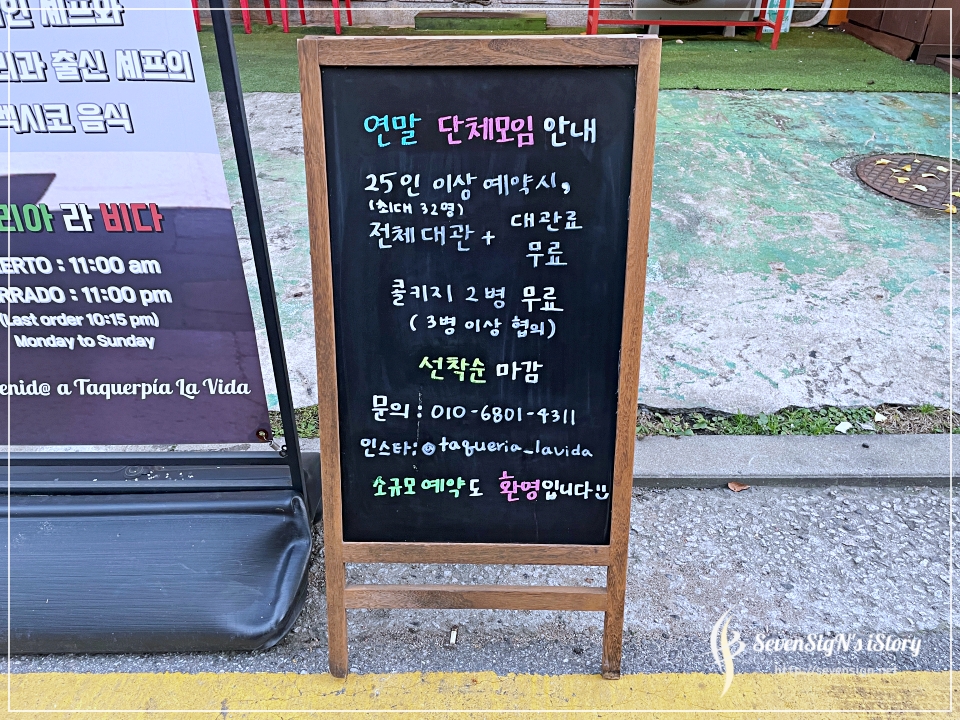 셰프와
출신 셰프의
멕시코 음식
리아 라 비다
ERTO : 11:00 am
RRADO : 11:00 pm
(Last order 10:15 pm)
Monday to Sunday
enid@ a Taquerpía La Vida
연말 단체모임 안내
25인 이상 예약시,
(최대 32명)
전체대관 + 대관료
무료
콜키지 2병 무료
(3병 이상 협의)
선착순 마감
문의 : 010-6801-4311
인스타:@taqueria_lavida
소규모 예약도 환영입니다
SevenSIgN's iStory
http://sevensign.net